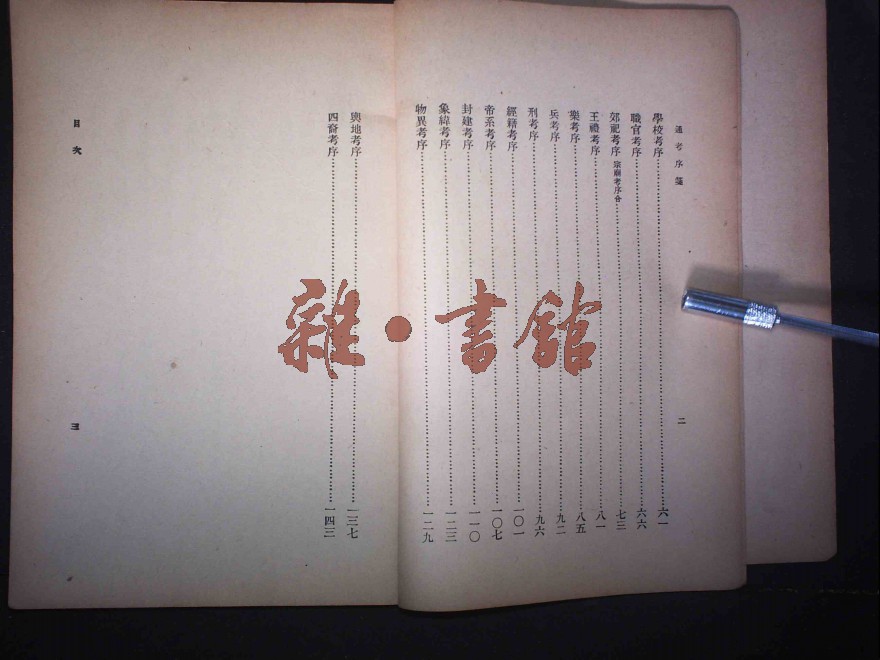 通考序箋
學校考序……六一
職官考序……六六
郊祀考序 宗廟考序合……七三
王禮考序……八一
樂考序……八五
兵考序……九二
刑考序……九六
經籍考序……一〇一
帝系考序……一〇七
封建考序……一一〇
象緯考序……一二三
物異考序……一二九
二
輿地考序……一三七
四裔考序……一四三
目次
三
雜·書館